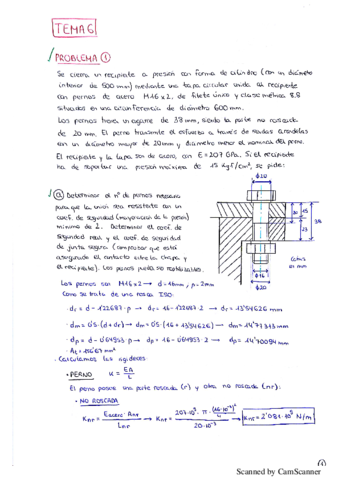 TEMA 6
PROBLEMA ①
Se cierra un recipiente a presión con forma de cilindro (con un diámetro
interior de 500 mm) mediante una tapa circular unida al recipiente
con pernos de acero M16x2, de filete único y clase métrica 8.8
situados en una circunferencia de diámetro 600 mm.
Los pernos tienen un agarre de 38 mm, siendo la parte no roscada
de 20 mm. El perno transmite el esfuerzo a través de sendas arandelas
con un diámetro mayor de 20 mm y diámetro menor el nominal del perno.
El recipiente y la tapa son de acero, con E = 207 GPa. Si el recipiente
ha de soportar una presión máxima de 15 Kgf/cm², se pide:
ⓐ Determinar el nº de pernos necesario
para que la unión sea resistente con un
coef. de seguridad (mayoración de la presión)
mínimo de 2. Determinar el coef. de
seguridad real y el coef. de seguridad
de junta segura (comprobar que esté
asegurado el contacto entre la chapa y
el recipiente). Los pernos podrán ser reutilizables.
ϕ20
20
15
23
38
Cotas
en mm
ϕ16
ϕ20
Los pernos son M16x2 → d=16mm, p=2mm
Como se trata de una rosca ISO:
· dr = d - 1'22687·p → dr = 16 - 1'22687·2 → dr = 13'54626 mm
· dm = 0'5·(d+dr) → dm = 0'5·(16 + 13'54626) → dm = 14'77313 mm
· dp = d - 0'64953·p → dp = 16 - 0'64953·2 → dp = 14'70094 mm
· At = 156'67 mm²
· Calculamos las rigideces
• PERNO K = EA/L
El perno posee una parte roscada (r) y otra no roscada (nr):
• NO ROSCADA
Knr = Eacero·Anr / Lnr → Knr = 207·10⁹·π·(16·10⁻³)²/4 / 20·10⁻³ → Knr = 2'081·10⁹ N/m
Scanned by CamScanner